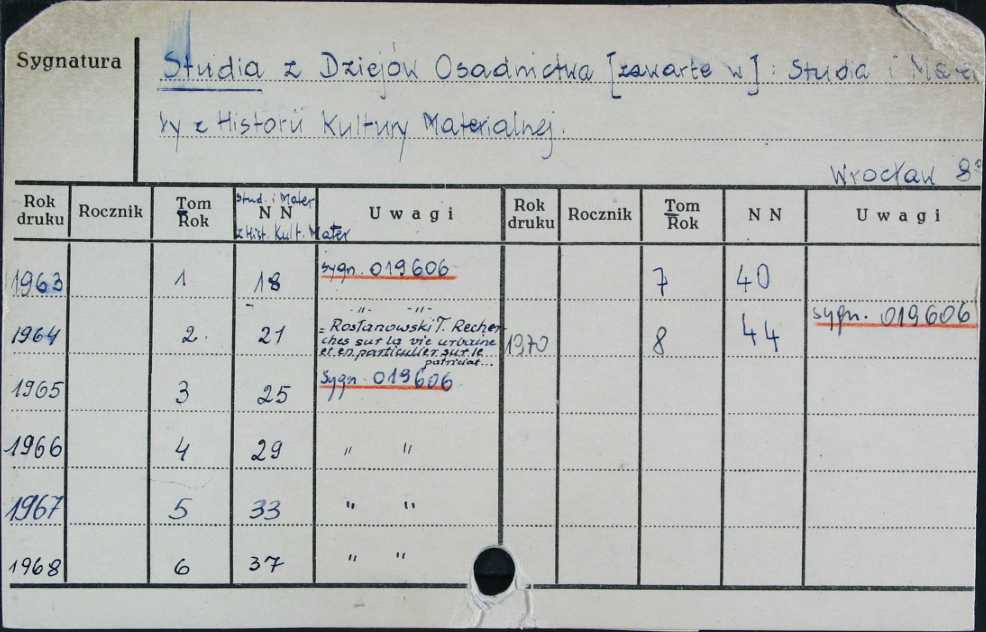 Sygnatura
Studia z Dziejów Osadnictwa [zawarte w]: Studia i Mater
ły z Historii Kultury Materialnej.
Wrocław 8°
Rok druku Rocznik Tom Rok Stud. i Mater N N z Hist. Kult. Mater Uwagi Rok druku Rocznik Tom Rok N N Uwagi
1963 1 18 sygn. 019606 7 40
1964 2. 21 -"- -"- 1970 8 44 sygn. 019606
= Rosłanowski T. Recher-
ches sur la vie urbaine
et en particulier sur le
patriciat...
1965 3 25 Sygn. 019606
1966 4 29 " "
1967 5 33 " "
1968 6 37 " "